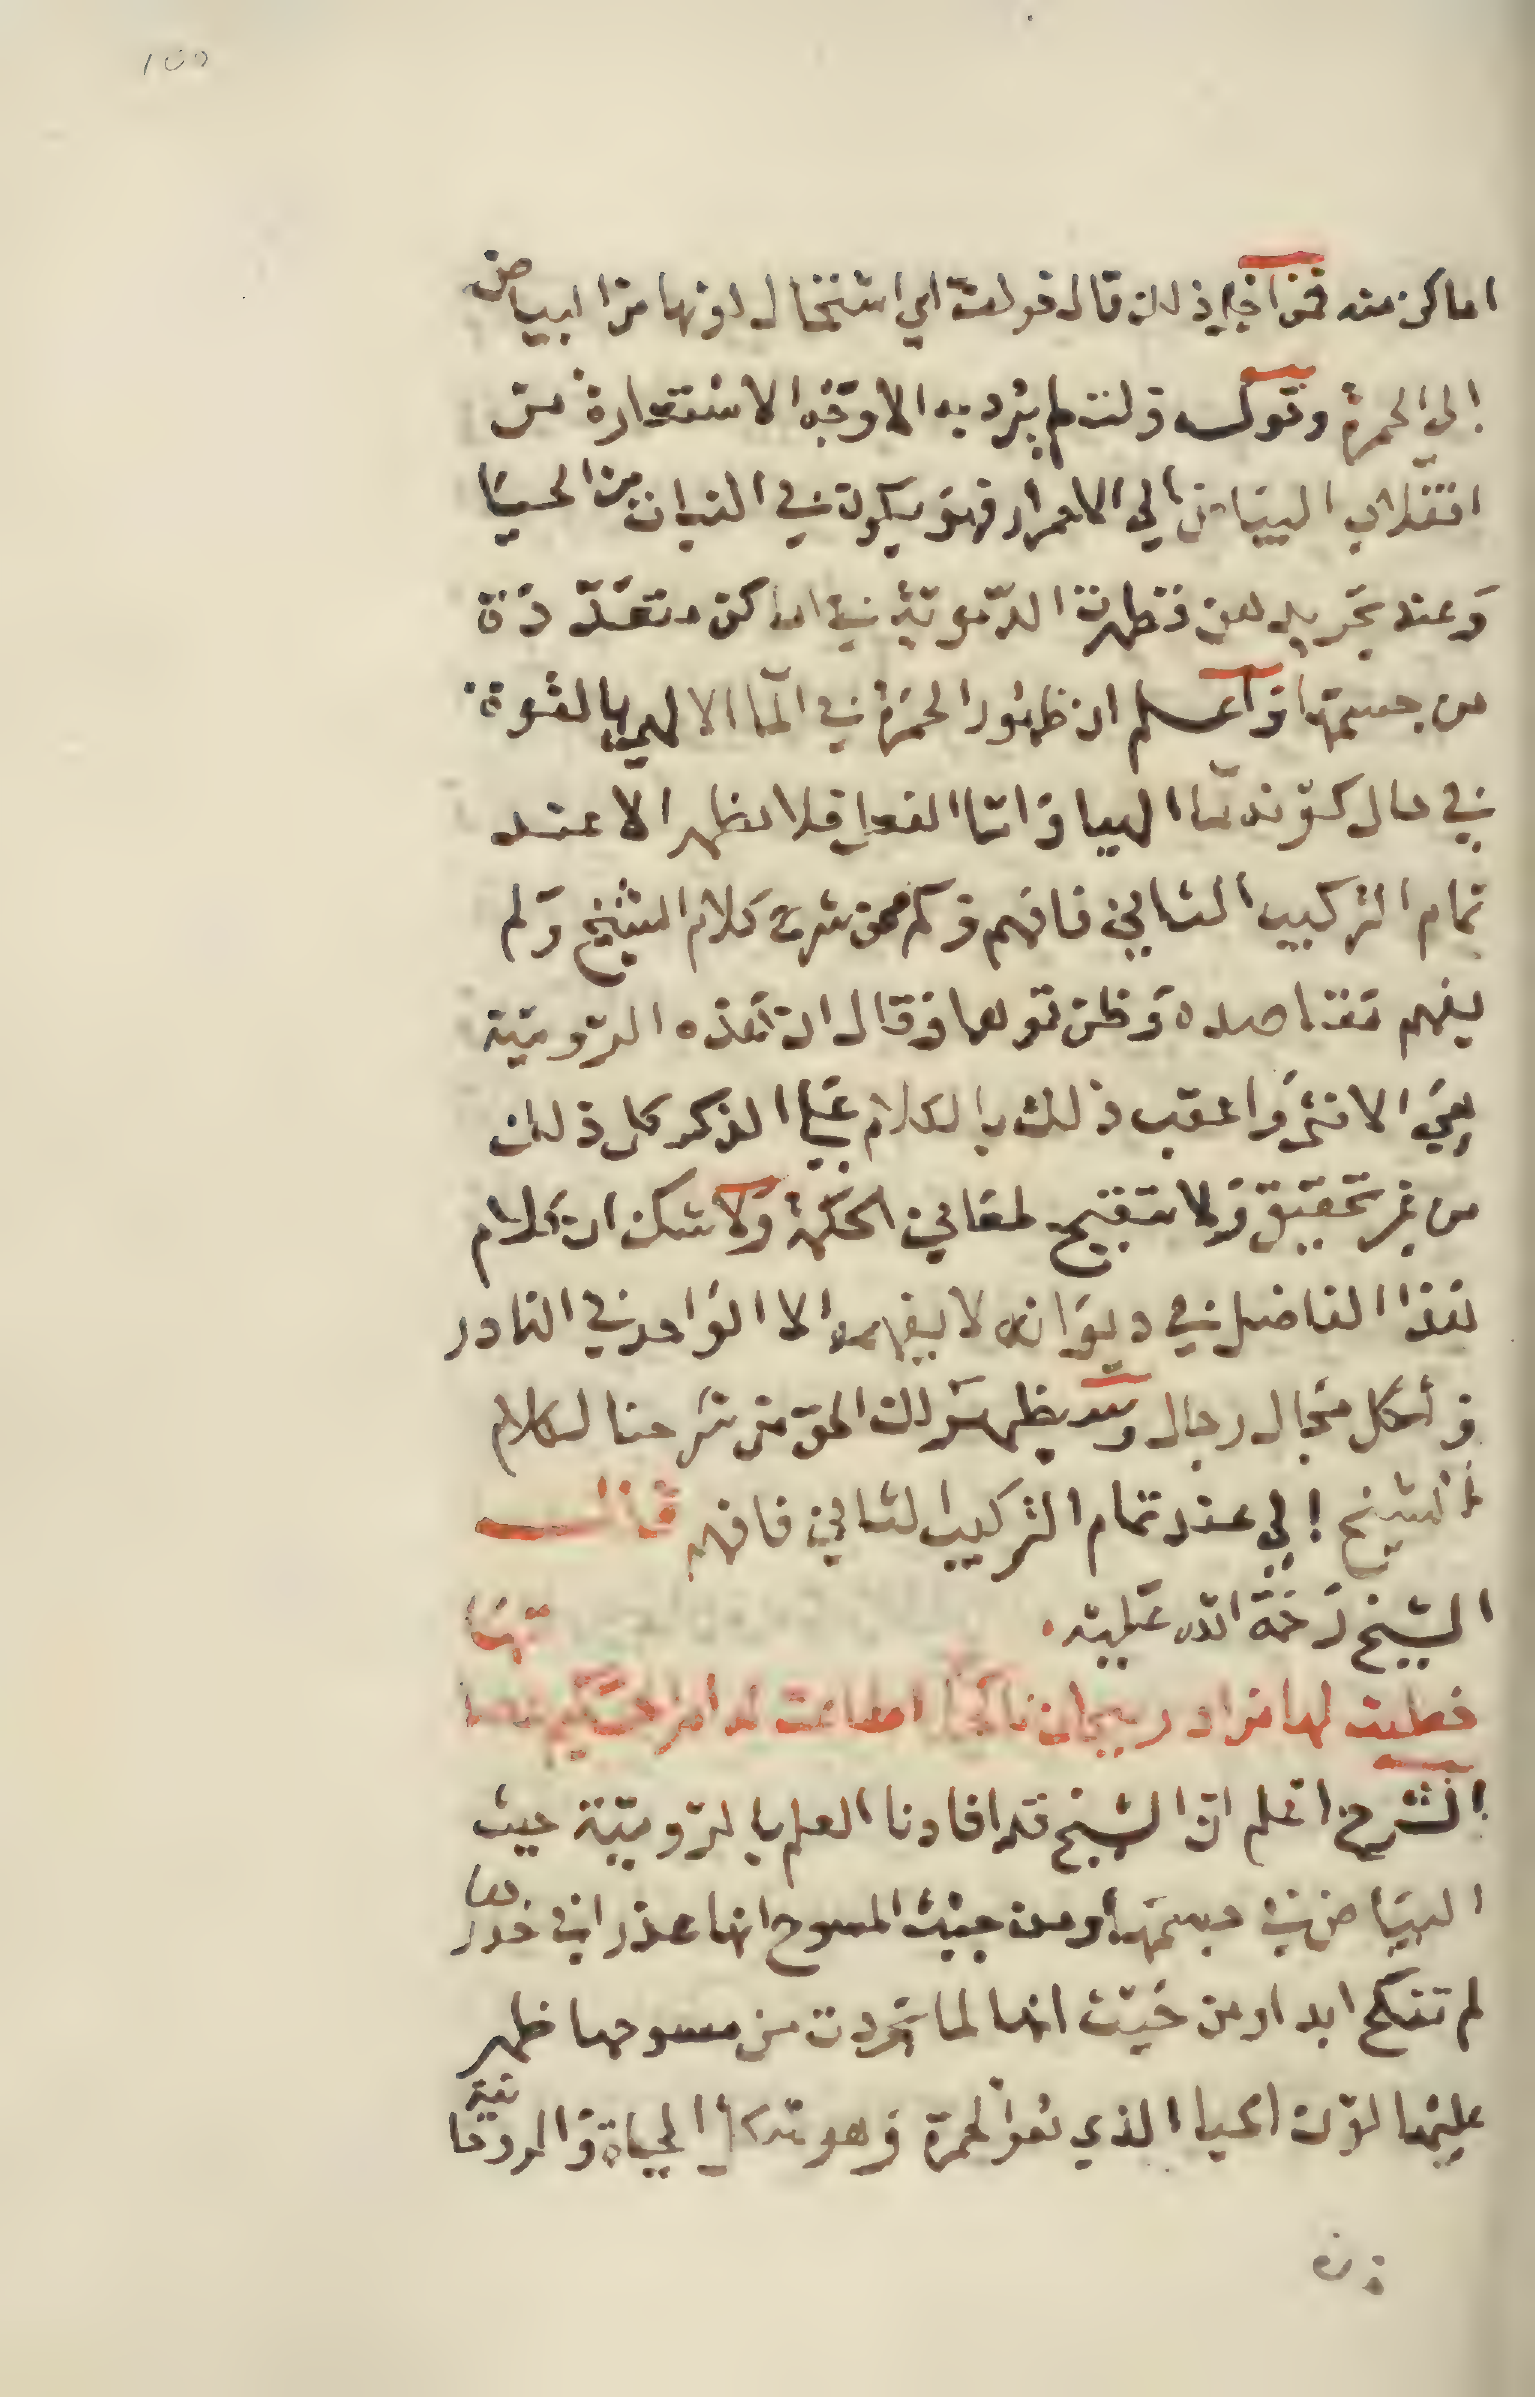 ١٥٥
اماكن منه فمن اجل ذلك قال فولت اي استحال لونها من البياض
الى الحمرة وقوله ولت لم يرد به الا وجه الاستعارة من
انقلاب البياض الى الاحمرار فهو يكون في النبات من الحيا
وعند تجريدهن فظهرت الدموية في اماكن متعددة
من جسمها واعلم ان ظهور الحمرة في الما الالهي بالقوة
في حال كونه ما الهيا واما الفعل فلا يظهر الا عند
تمام التركيب الثاني فافهم وكم ممن شرح كلام الشيخ ولم
يفهم مقاصده وظن وقال ان هذه الرومية
هي الانثى واعقب ذلك بالكلام على الذكر كل ذلك
من غير تحقيق ولا تنقيح لمعاني الحكمة ولا شك ان كلام
هذا الفاضل في ديوانه لا يفهمه الا الواحد في النادر
ولكل مجال رجال وسيظهر لك الحق من شرحنا لكلام
الشيخ الى عند تمام التركيب الثاني فافهم قال
الشيخ رحمة الله عليه
خطبت لها من اذربيجان ناكحا اطاعت له امر
الشرح اعلم ان الشيخ قد افادنا العلم بالرومية حيث
البياض في جسمها ومن حيث المسوح انها عذرا في خدرها
لم تنكح ابدا ومن حيث انها لما تجردت من مسوحها ظهر
عليها لون الحيا الذي هو الحمرة وهو تدل الحياة والروحانية